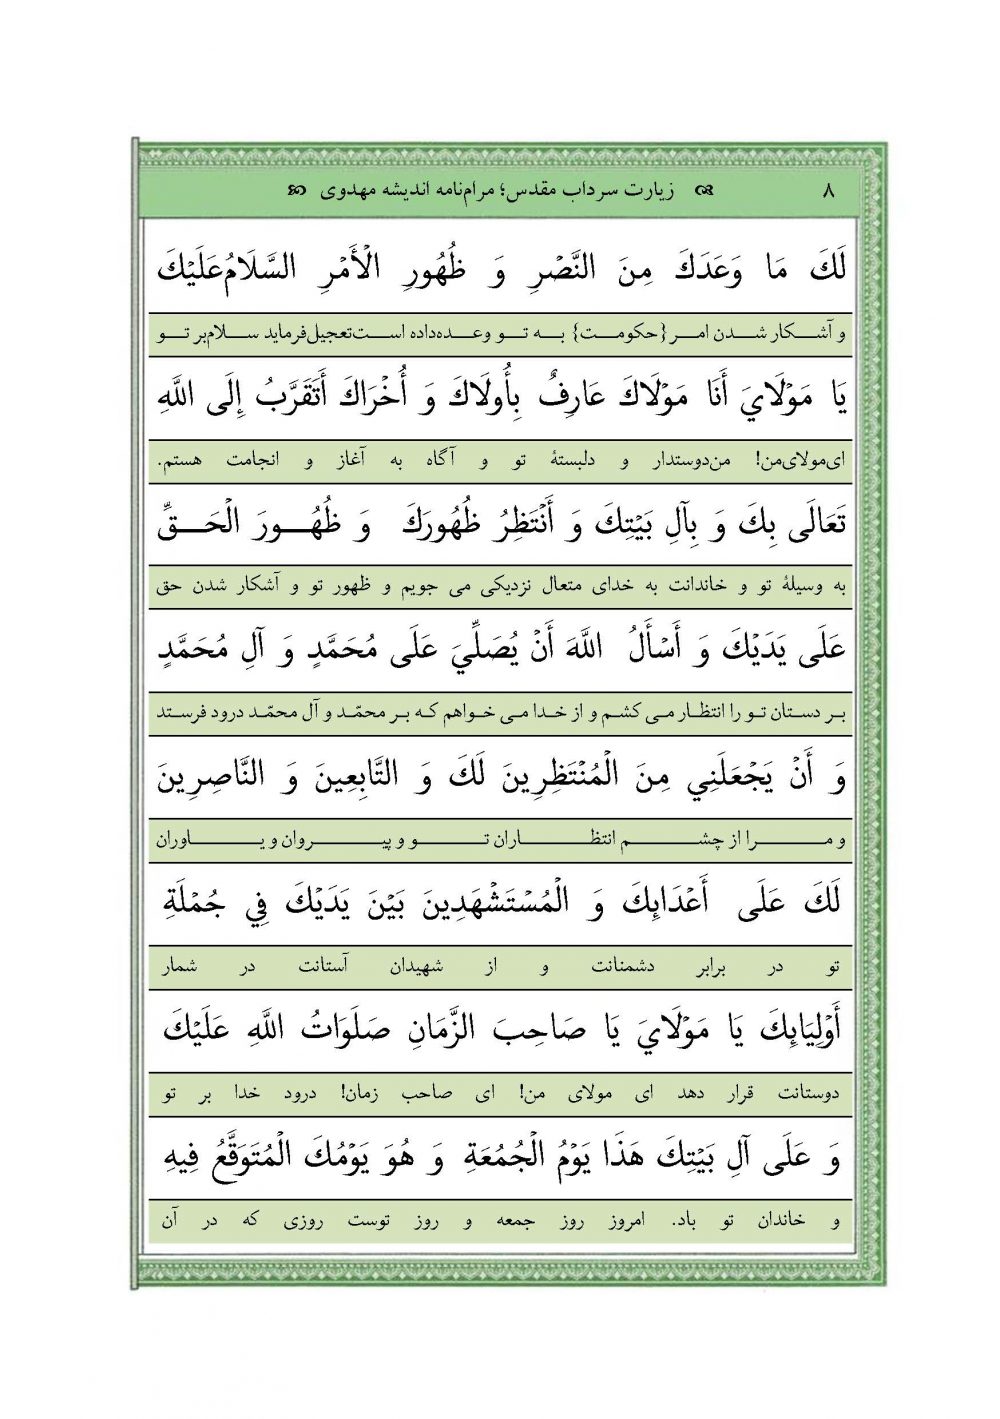 ۸ زیارت سرداب مقدس؛ مرام‌نامه اندیشه مهدوی
لَكَ مَا وَعَدَكَ مِنَ النَّصْرِ وَ ظُهُورِ الْأَمْرِ السَّلَامُ عَلَيْكَ
و آشکار شدن امر {حکومت} به تو وعده‌داده است‌تعجیل‌فرماید سلام‌بر تو
يَا مَوْلَايَ أَنَا مَوْلَاكَ عَارِفٌ بِأُولَاكَ وَ أُخْرَاكَ أَتَقَرَّبُ إِلَى اللَّهِ
ای‌مولای‌من! من‌دوستدار و دلبستهٔ تو و آگاه به آغاز و انجامت هستم.
تَعَالَى بِكَ وَ بِآلِ بَيْتِكَ وَ أَنْتَظِرُ ظُهُورَكَ وَ ظُهُورَ الْحَقِّ
به وسیلهٔ تو و خاندانت به خدای متعال نزدیکی می جویم و ظهور تو و آشکار شدن حق
عَلَى يَدَيْكَ وَ أَسْأَلُ اللَّهَ أَنْ يُصَلِّيَ عَلَى مُحَمَّدٍ وَ آلِ مُحَمَّدٍ
بر دستان تو را انتظار می کشم و از خدا می خواهم که بر محمّد و آل محمّد درود فرستد
وَ أَنْ يَجْعَلَنِي مِنَ الْمُنْتَظِرِينَ لَكَ وَ التَّابِعِينَ وَ النَّاصِرِينَ
و مرا از چشم انتظاران تو و پیروان و یاوران
لَكَ عَلَى أَعْدَائِكَ وَ الْمُسْتَشْهَدِينَ بَيْنَ يَدَيْكَ فِي جُمْلَةِ
تو در برابر دشمنانت و از شهیدان آستانت در شمار
أَوْلِيَائِكَ يَا مَوْلَايَ يَا صَاحِبَ الزَّمَانِ صَلَوَاتُ اللَّهِ عَلَيْكَ
دوستانت قرار دهد ای مولای من! ای صاحب زمان! درود خدا بر تو
وَ عَلَى آلِ بَيْتِكَ هَذَا يَوْمُ الْجُمُعَةِ وَ هُوَ يَوْمُكَ الْمُتَوَقَّعُ فِيهِ
و خاندان تو باد. امروز روز جمعه و روز توست روزی که در آن